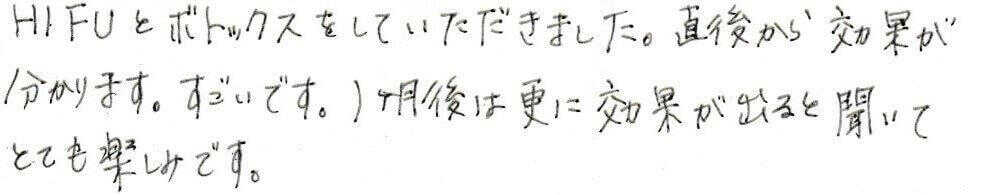 HIFUとボトックスをしていただきました。直後から効果が
分かります。すごいです。1ヶ月後は更に効果が出ると聞いて
とても楽しみです。